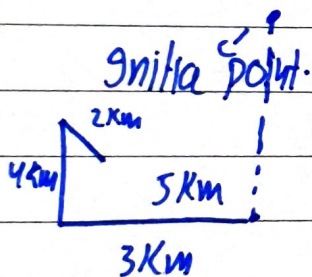 Initia point.
2km
4km
5km
3km